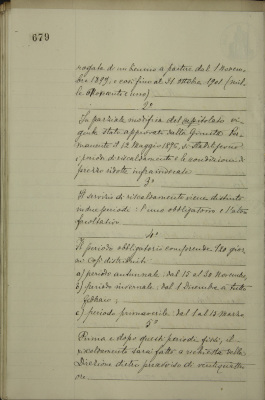 679
rogata di un biennio a partire dal 1 Novem-
bre 1899, e così fino al 31 Ottobre 1901 (mil-
le novecento uno)
2°
In parziale modifica del capitolato vi-
gente stato approvato dalla Giunta
il 12 Maggio 1896,
periodo di riscaldamento e le condizioni di
prezzo ridotte infraindicate
3°
Il servizio di riscaldamento viene distinto
in due periodi: l'uno obbligatorio e l'altro
facoltativo
4°
Il periodo obbligatorio comprende 120 gior-
ni così distribuiti
a) periodo autunnale: dal 15 al 30 Novembre
b) periodo invernale: dal 1 Dicembre a tutto
Febbraio;
c) periodo primaverile: dal 1 al 15 Marzo
5°
Prima e dopo questi periodi fissi, il
riscaldamento sarà fatto a richiesta della
Direzione dietro preavviso di ventiquattro
ore